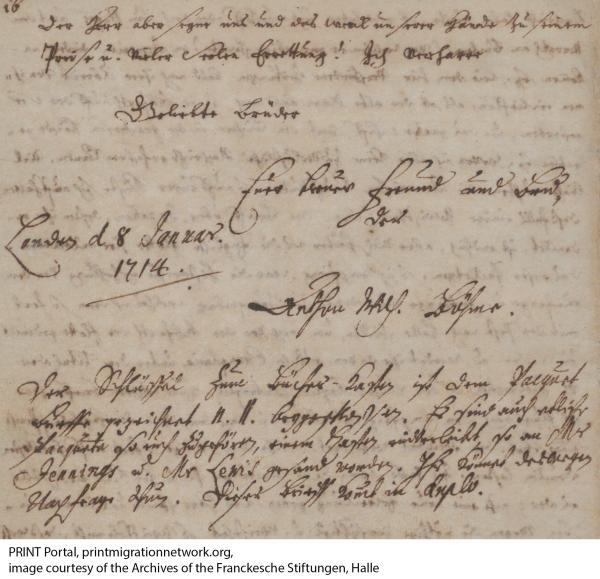 16
Der Herr aber segne uns und das Werck unserer Hände zu seinem
Preise u. vieler Seelen Errettung! Ich verharre
Geliebte Brüder
Euer treuer Freund und Bru,
der
London d. 8 Januar.
1714.
Anthon Wilh. Böhme.
Der Schlüssel zum Bücher-Kasten ist dem Pacquet
Brieffe gezeichnet N. N. beygeschlossen. Es sind auch etliche
Pacquete so euch zugehören, einem Kasten einverleibt, so an Mr
Jennings u. Mr Lewis gesand worden. Ihr könnet deswegen
Nachfrage thun. Dieser Brieff komt in
PRINT Portal, printmigrationnetwork.org,
image courtesy of the Archives of the Franckesche Stiftungen, Halle